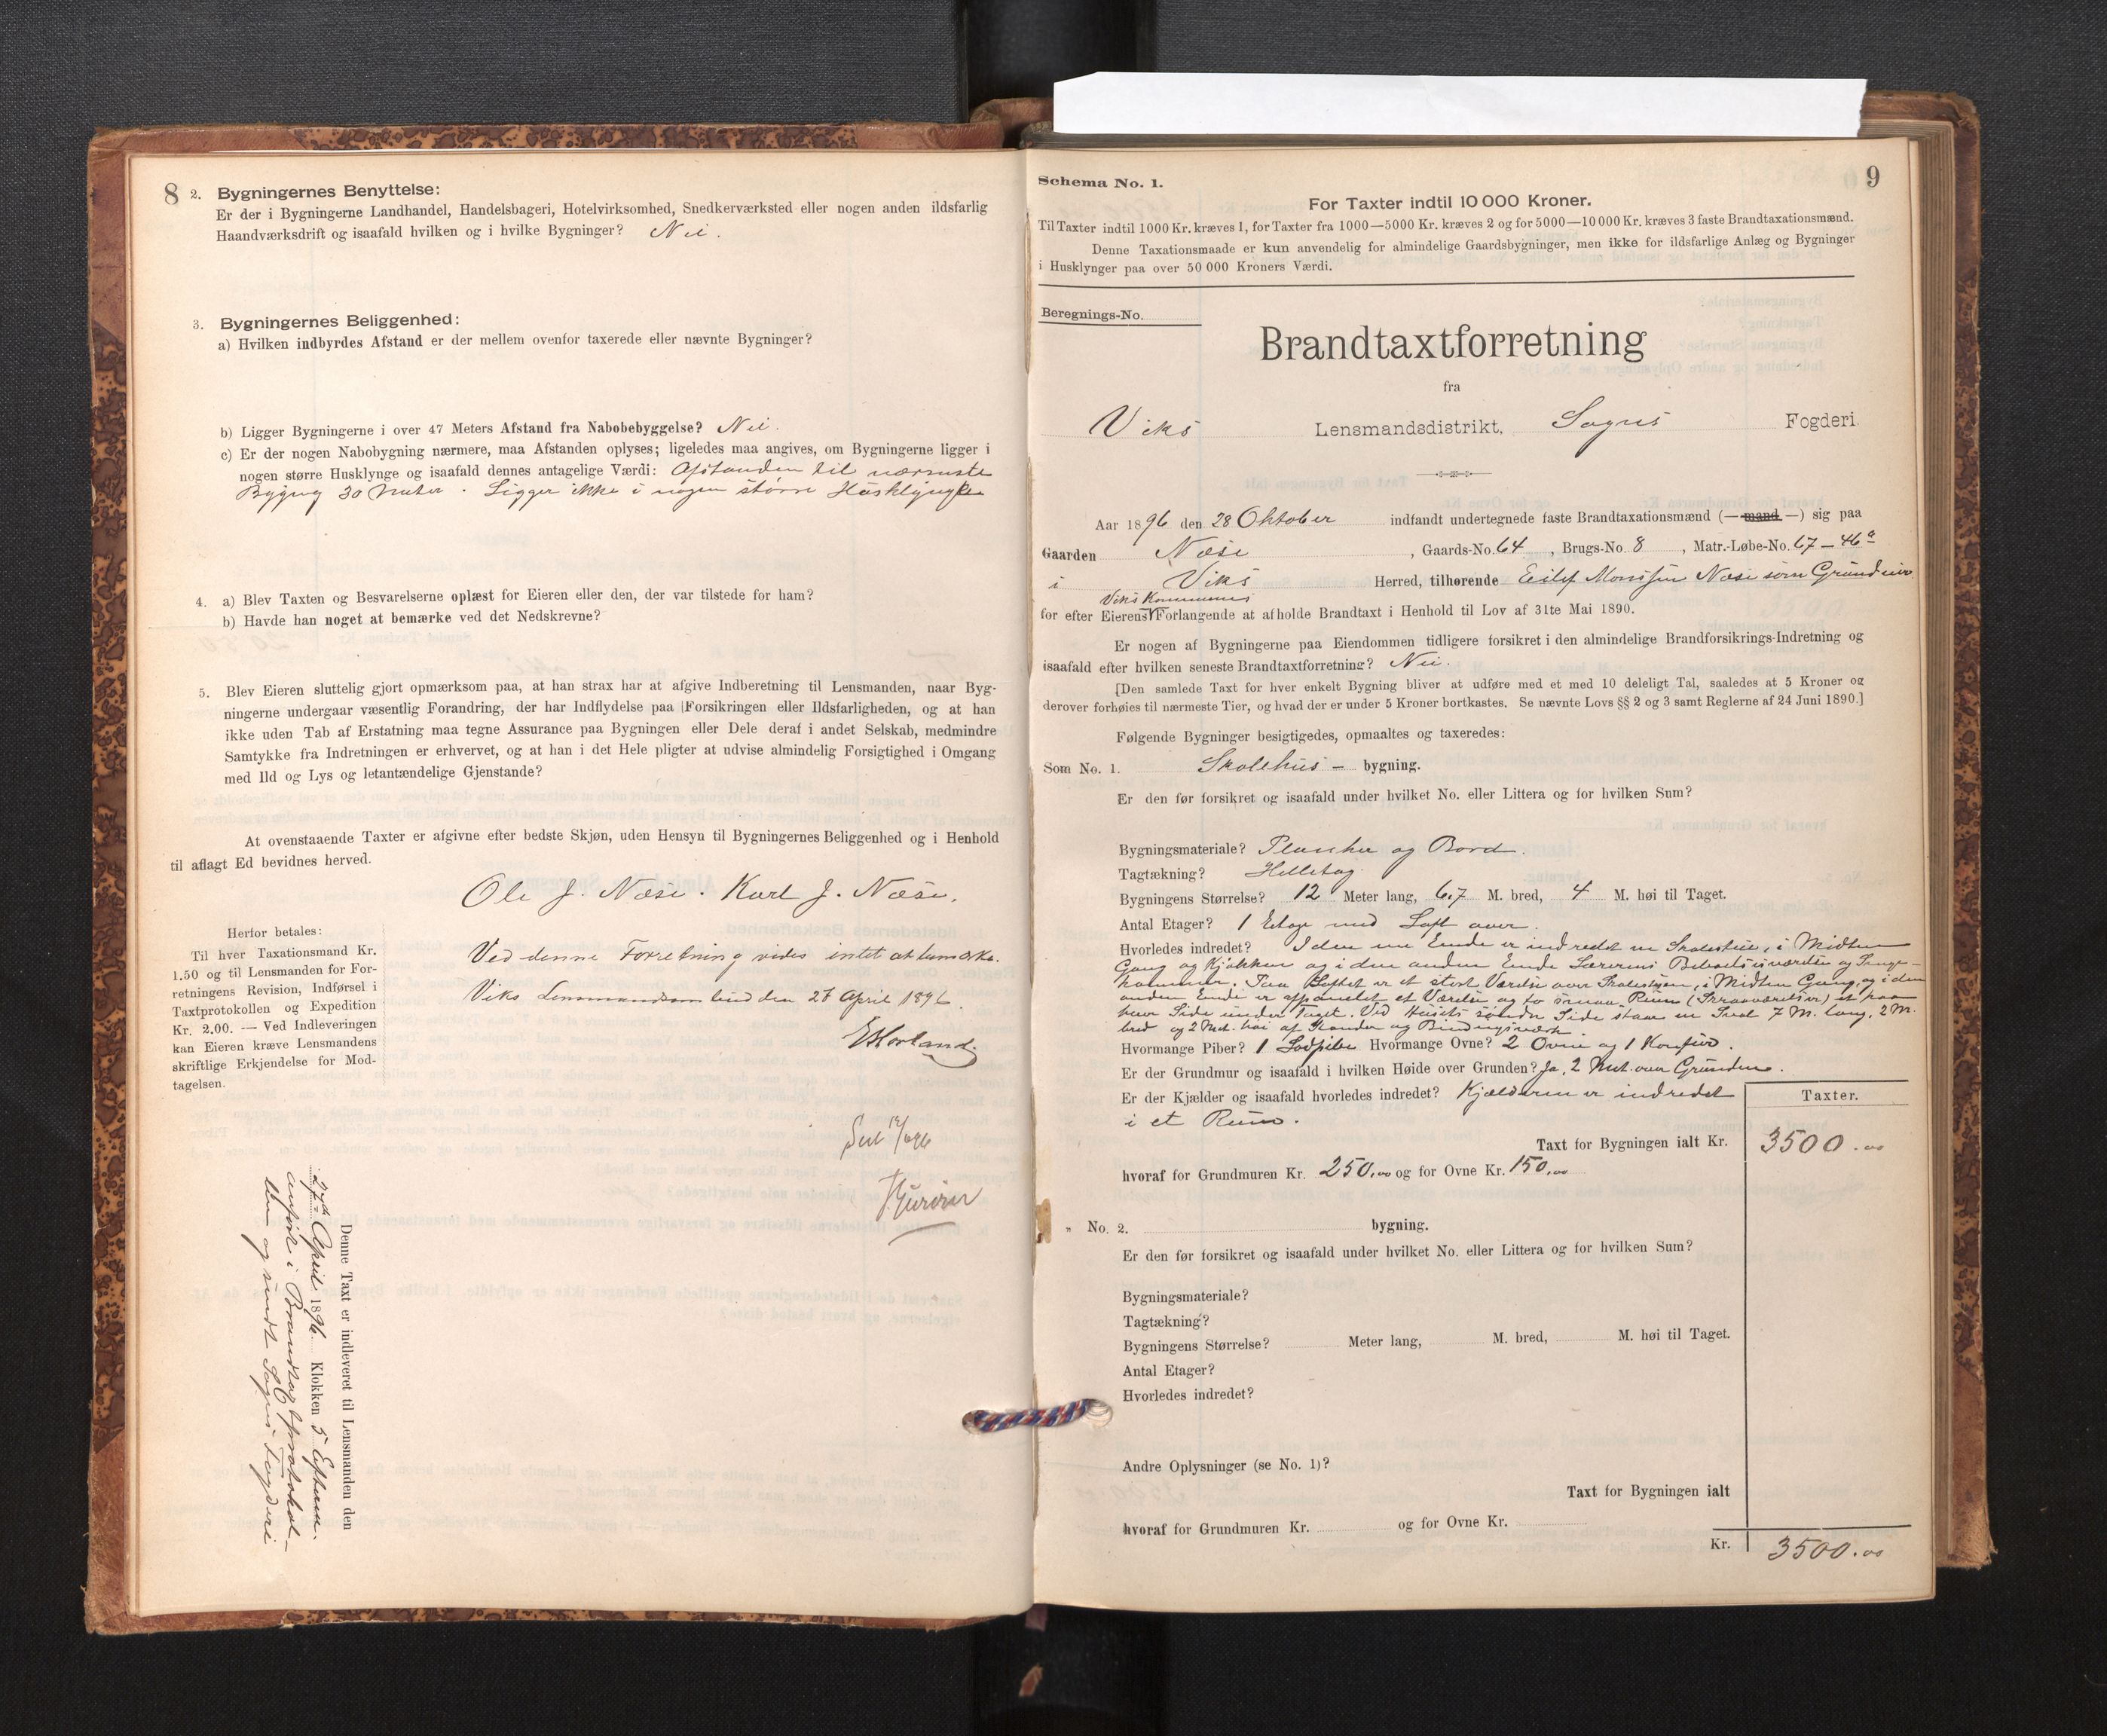 8
2. Bygningernes Benyttelse:
Er der i Bygningerne Landhandel, Handelsbageri, Hotelvirksomhed, Snedkerværksted eller nogen anden ildsfarlig
Haandværksdrift og isaafald hvilken og i hvilke Bygninger? Nei.
3. Bygningernes Beliggenhed:
a) Hvilken indbyrdes Afstand er der mellem ovenfor taxerede eller nævnte Bygninger?
b) Ligger Bygningerne i over 47 Meters Afstand fra Nabobebyggelse? Nei.
c) Er der nogen Nabobygning nærmere, maa Afstanden oplyses; ligeledes maa angives, om Bygningerne ligger i
nogen større Husklynge og isaafald dennes antagelige Værdi: Afstanden til nærmeste
Bygng 30 Meter. Ligger ikke i nogen større Husklynge
4. a) Blev Taxten og Besvarelserne oplæst for Eieren eller den, der var tilstede for ham?
b) Havde han noget at bemærke ved det Nedskrevne?
5. Blev Eieren sluttelig gjort opmærksom paa, at han strax har at afgive Indberetning til Lensmanden, naar Byg-
ningerne undergaar væsentlig Forandring, der har Indflydelse paa Forsikringen eller Ildsfarligheden, og at han
ikke uden Tab af Erstatning maa tegne Assurance paa Bygningen eller Dele deraf i andet Selskab, medmindre
Samtykke fra Indretningen er erhvervet, og at han i det Hele pligter at udvise almindelig Forsigtighed i Omgang
med Ild og Lys og letantændelige Gjenstande?
At ovenstaaende Taxter er afgivne efter bedste Skjøn, uden Hensyn til Bygningernes Beliggenhed og i Henhold
til aflagt Ed bevidnes herved.
Ole J. Næse. Karl J. Næse.
Herfor betales:
Til hver Taxationsmand Kr.
1.50 og til Lensmanden for For-
retningens Revision, Indførsel i
Taxtprotokollen og Expedition
Kr. 2.00. — Ved Indleveringen
kan Eieren kræve Lensmandens
skriftlige Erkjendelse for Mod-
tagelsen.
Ved denne Forretning vides intet at bemærke.
Viks Lensmandsombud den 27 April 1896.
EHovland.
Denne Taxt er indleveret til Lensmanden den
27de April 1896 Klokken 5 Efterm.
anført i Brandtaxtprotokol-
len og sendt Sogns Fogderi
9
Schema No. 1.
For Taxter indtil 10 000 Kroner.
Til Taxter indtil 1000 Kr. kræves 1, for Taxter fra 1000—5000 Kr. kræves 2 og for 5000—10 000 Kr. kræves 3 faste Brandtaxationsmænd.
Denne Taxationsmaade er kun anvendelig for almindelige Gaardsbygninger, men ikke for ildsfarlige Anlæg og Bygninger
i Husklynger paa over 50 000 Kroners Værdi.
Beregnings-No.
Brandtaxtforretning
fra
Viks Lensmandsdistrikt, Sogns Fogderi
Aar 1896 den 28 Oktober indfandt undertegnede faste Brandtaxationsmænd (—mand—) sig paa
Gaarden Næse, Gaards-No. 64, Brugs-No. 8, Matr.-Løbe-No. 67 – 46a
i Viks Herred, tilhørende Eilef Monssen Næse som Grundeier
Viks Kommunes
for efter Eierens Forlangende at afholde Brandtaxt i Henhold til Lov af 31te Mai 1890.
Er nogen af Bygningerne paa Eiendommen tidligere forsikret i den almindelige Brandforsikrings-Indretning og
isaafald efter hvilken seneste Brandtaxtforretning? Nei.
[Den samlede Taxt for hver enkelt Bygning bliver at udføre med et med 10 deleligt Tal, saaledes at 5 Kroner og
derover forhøies til nærmeste Tier, og hvad der er under 5 Kroner bortkastes. Se nævnte Lovs §§ 2 og 3 samt Reglerne af 24 Juni 1890.]
Følgende Bygninger besigtigedes, opmaaltes og taxeredes:
Som No. 1. Skolehus – bygning.
Er den før forsikret og isaafald under hvilket No. eller Littera og for hvilken Sum?
Bygningsmateriale? Planker og Bord.
Tagtækning? Helletag.
Bygningens Størrelse? 12 Meter lang, 6,7 M. bred, 4 M. høi til Taget.
Antal Etager? 1 Etage med Loft over.
Hvorledes indredet? I den ene Ende er indredet en Skolestue, i Midten
Gang og Kjøkken og i den anden Ende Lærerens Beboelsesværelse og Senge-
kammer. Paa Loftet er et stort Værelse over Skolestuen, i Midten Gang, og i den
anden Ende er afpanelet et Værelse og to smaa Rum (Skraaværelser) et paa
hver Side under Taget. Ved Husets søndre Side staar en Sval 7 M. lang, 2 M.
bred og 2 Met. høi af Stender og Bindingsværk.
Hvormange Piber? 1 Lodpibe Hvormange Ovne? 2 Ovne og 1 Komfur.
Er der Grundmur og isaafald i hvilken Høide over Grunden? Ja, 2 Met. over Grunden.
Er der Kjælder og isaafald hvorledes indredet? Kjælderen er indredet
i et Rum.
Taxter.
Taxt for Bygningen ialt Kr. 3500.00
hvoraf for Grundmuren Kr. 250,00 og for Ovne Kr. 150,00
" No. 2. bygning.
Er den før forsikret og isaafald under hvilket No. eller Littera og for hvilken Sum?
Bygningsmateriale?
Tagtækning?
Bygningens Størrelse? Meter lang, M. bred, M. høi til Taget.
Antal Etager?
Hvorledes indredet?
Andre Oplysninger (se No. 1)?
Taxt for Bygningen ialt
hvoraf for Grundmuren Kr. og for Ovne Kr.
Kr. 3500.00